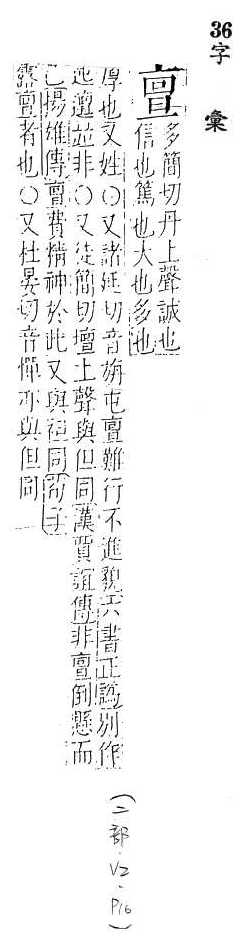 36字 彙
亶
多簡切丹上聲誠也
信也篤也大也多也
厚也又姓○又諸延切音旃屯亶難行不進貌六書正譌別作
邅並非○又徒簡切壇上聲與但同漢賈誼傳非亶倒懸而
已揚雄傳亶費精神於此又與袒同荀子
露亶者也○又杜晏切音憚亦與但同
(二部.V2.P16)